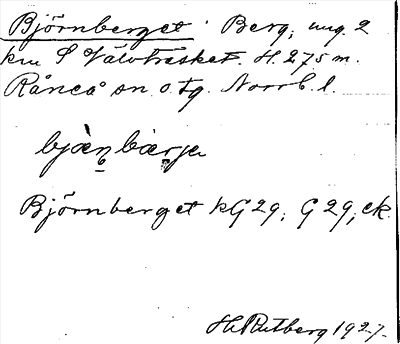 Björnberget. Berg, ung. 2
km S Välvträsket. H. 275 m.
Råneå sn. o. tg. Norrb. l.
bjæ̀n̥bær̥je
Björnberget kG29; G29; ek.
H. Rutberg 1927.